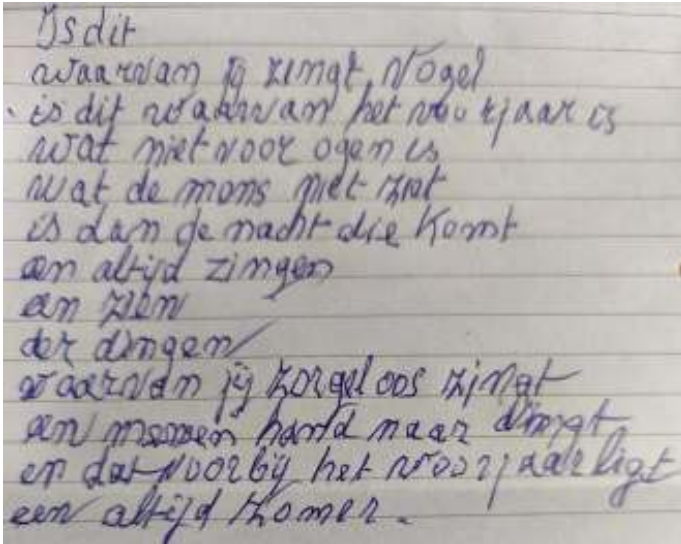 Is dit
waarvan jij zingt, Vogel
is dit waarvan het voorjaar is
wat niet voor ogen is
wat de mens niet ziet
is dan de nacht die komt
een altijd zingen
en zien
der dingen
waarvan jij zorgeloos zingt
en mensen hand naar dingt
en dat voorbij het voorjaar ligt
een altijd zomer.